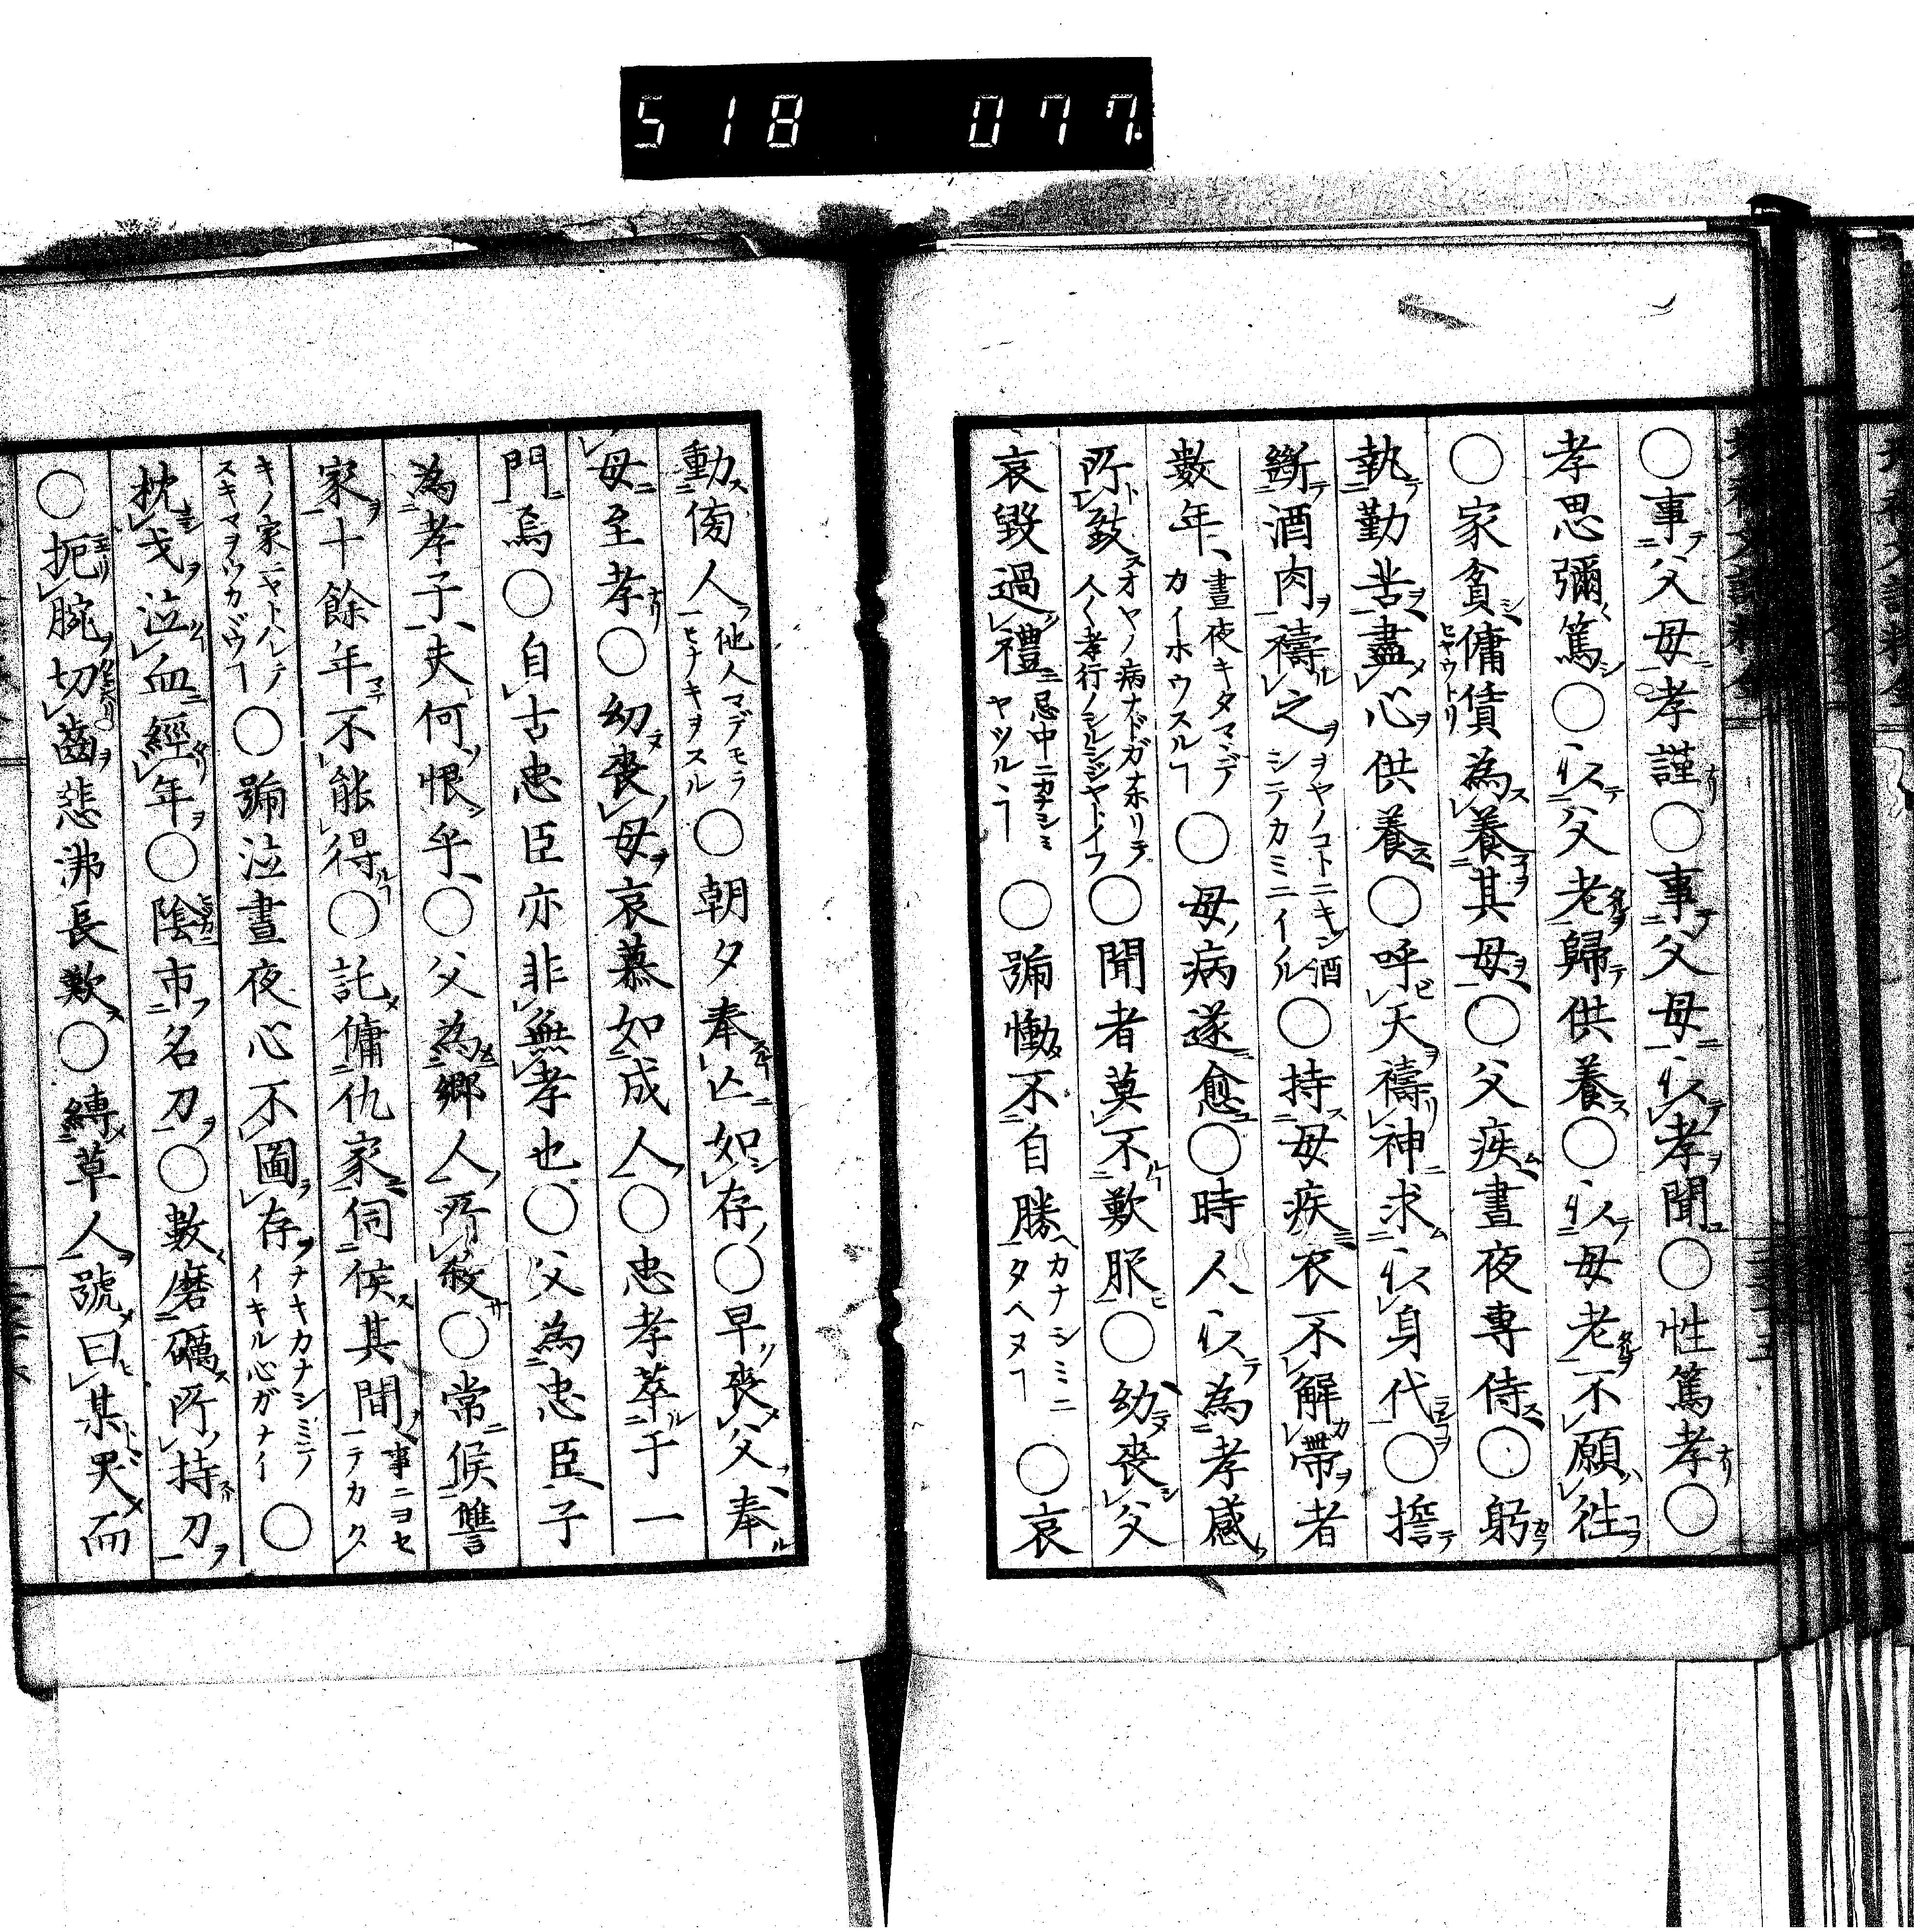 518 077
○事父母孝謹○事父母以孝聞○性篤孝○
孝思彌篤○以父老歸供養○以母老不願往
○家貧傭賃為養其母○父疾晝夜專侍○躬
執勤苦盡心供養○呼天禱神求以身代○擔
斷酒肉禱之ヲヤノコトニキン酒シテカミニイノル○持母疾衣不解帶者
數年晝夜キタマヽデカイホウスルヿ○母病遂愈○時人以為孝感
所致オヤノ病ナドガナホリテ人〱孝行ノシルシジヤトイフ○聞者莫不歎服○幼喪父
哀毀過禮忌中ニカナシミヤツルヽヿ○號慟不自勝カナシミニタヘヌヿ○哀
動傍人他人マデモラヒナキヲスル○朝夕奉亡如存○早喪父奉
母至孝○幼喪母哀慕如成人○忠孝萃于一
門焉○自古忠臣亦非無孝也○父為忠臣子
為孝子夫何恨乎○父為鄉人所殺○常候讐
家十餘年不能得○託傭仇家伺候其間事ニヨセテカタ
キノ家ニヤトハレテスキマヲウカヾウヿ○號泣晝夜心不圖存ナキカナシミニノイキル心ガナイ○
枕戈泣血經年○陰市名刀○數磨礪所持刀
○扼腕切齒悲沸長歎○縛草人號曰某哭而